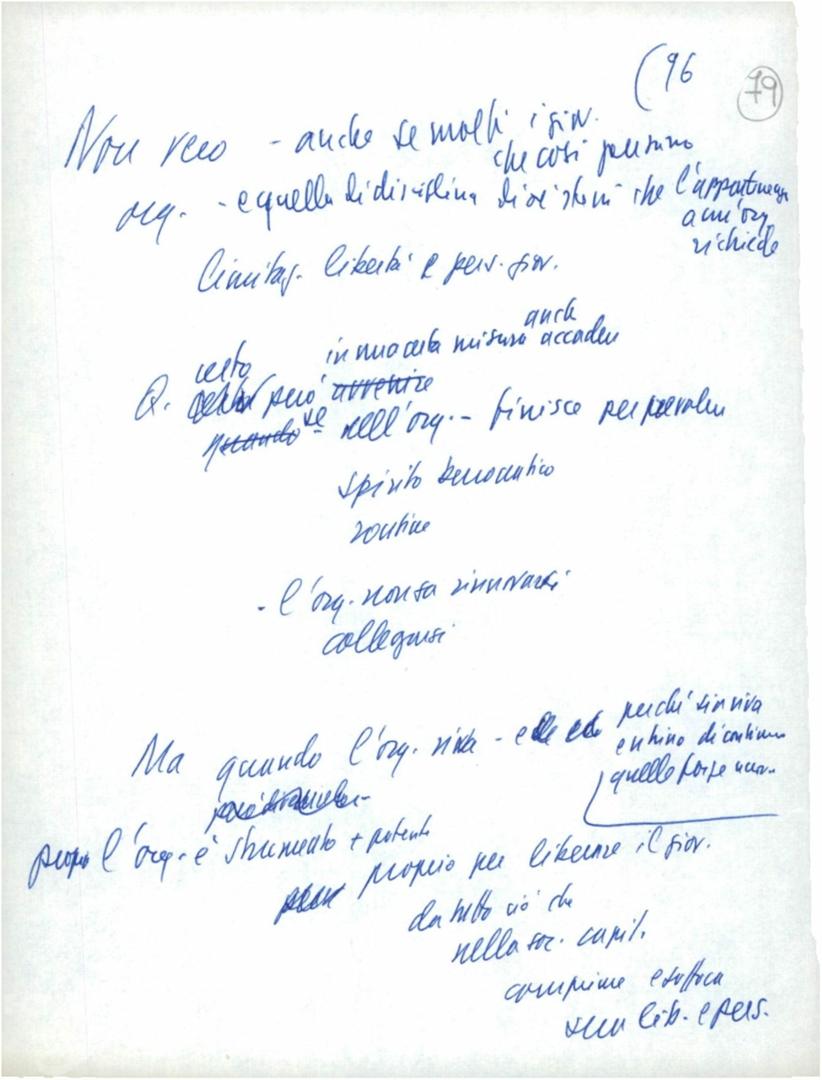 (96
79
Non vero - anche se molti i giov.
che così pensano
org. - e quella di disciplina di sé stessi che l'appartenenza
a un'org
richiede
limitaz. libertà e pers. giov.
anche
certo in una certa misura accadere
Q. può avvenire
quando se nell'org. - finisce per prevalere
spirito burocratico
routine
- l'org. non sa rinnovarsi
collegarsi
Ma quando l'org. viva - e perché sia viva
entrino di continuo
quelle forze nuov.
proprio l'org. è strumento + potente
proprio per liberare il giov.
da tutto ciò che
nella soc. capit.
comprime e soffoca
sua lib. e pers.